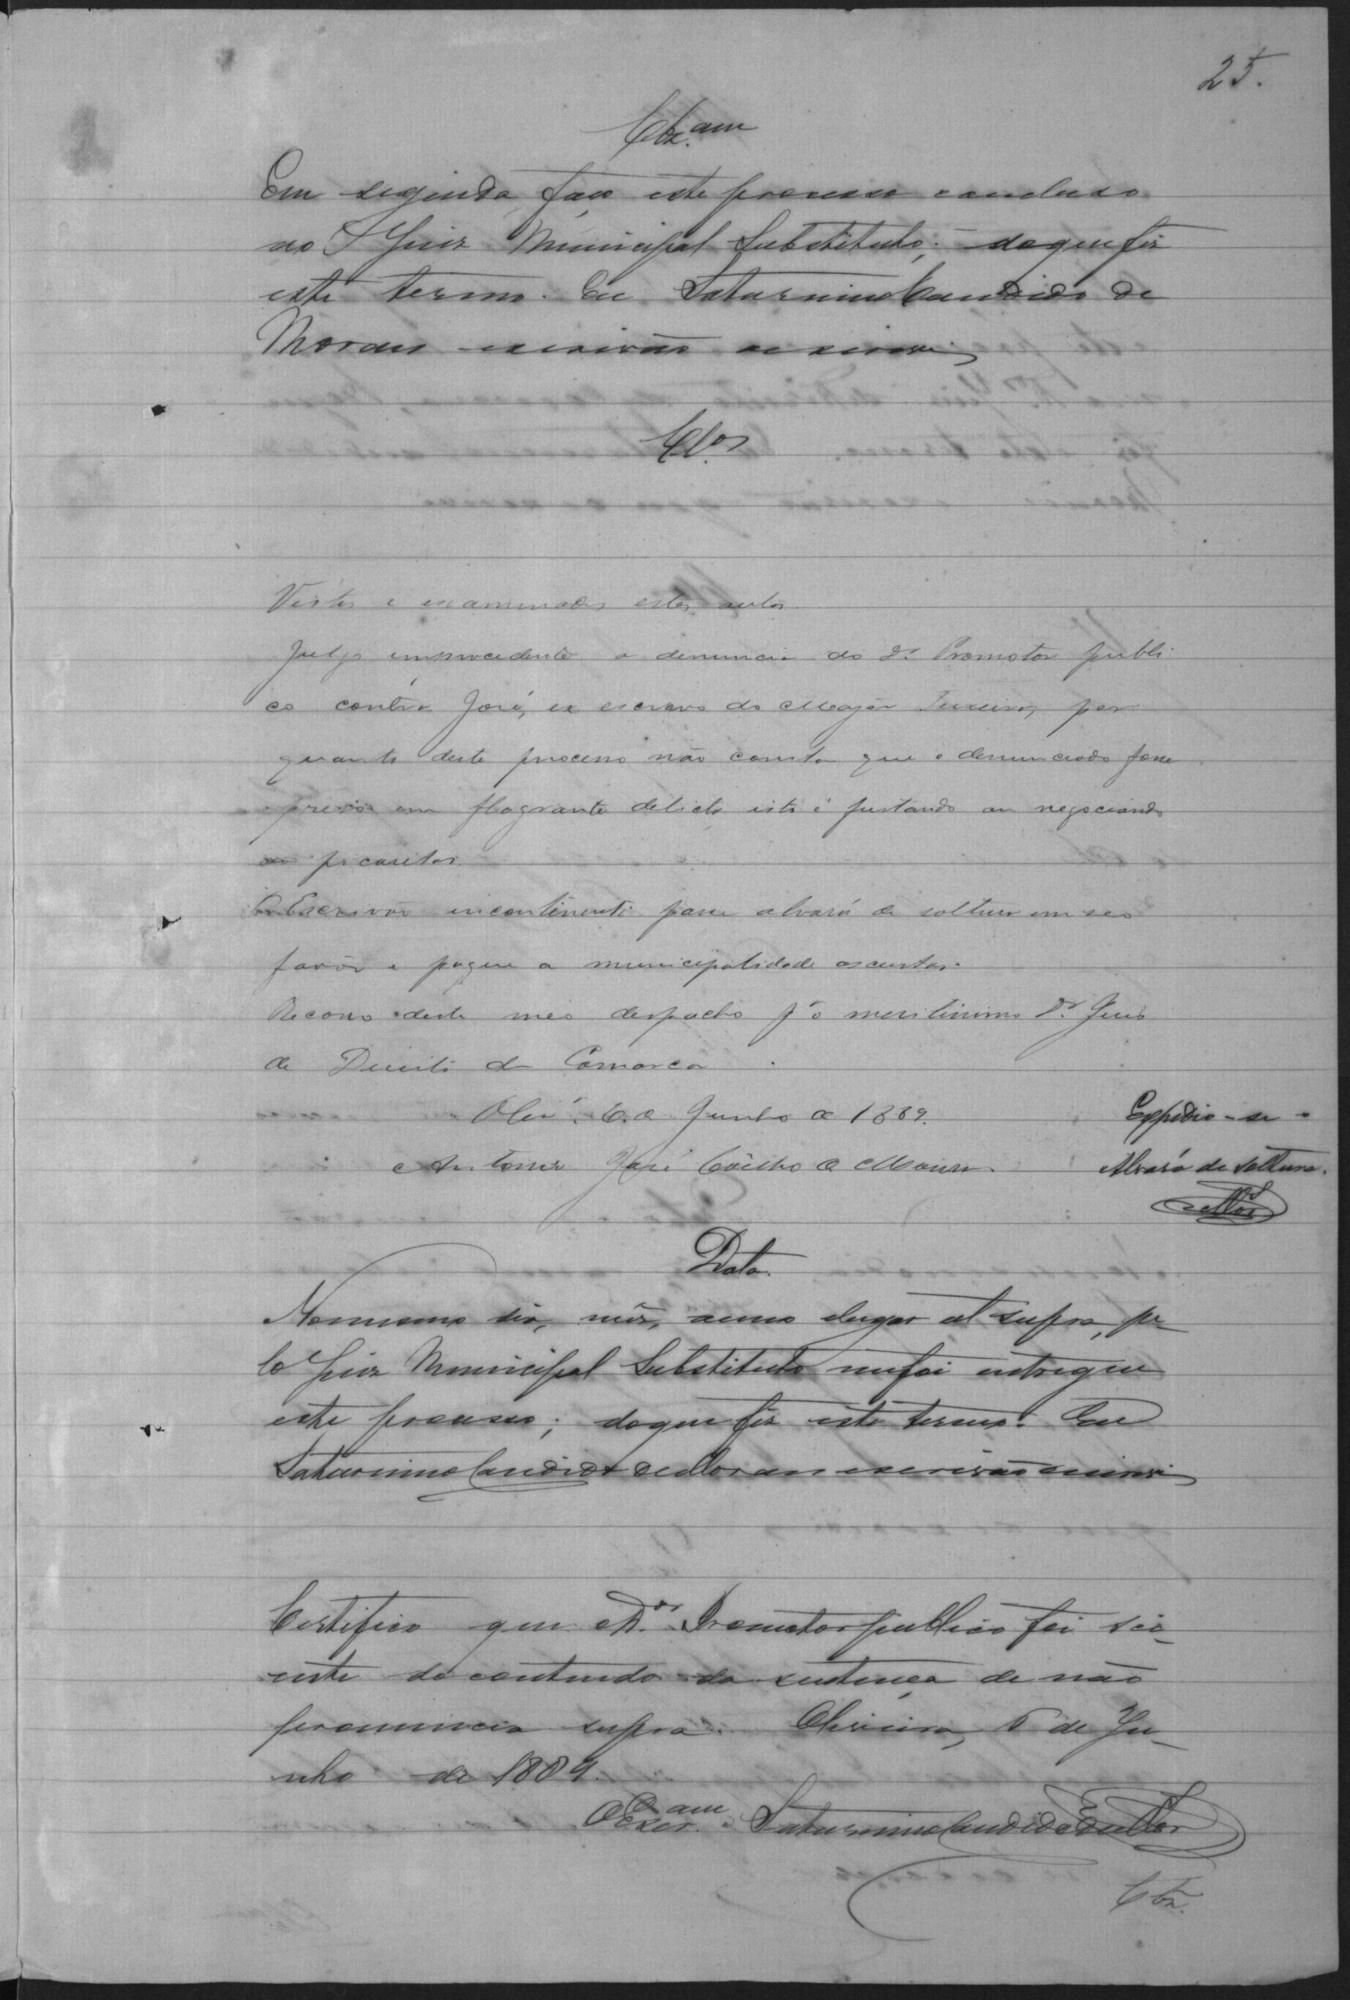 25.
Clz.am
Em seguida faço este processo concluso
ao Juiz Municipal Substituto; do que fiz
este termo. Eu Saturnino Candido de
Moraes escrivão o escrevi
Cl.os
Vistos e examinados estes autos.
Julgo improcedente a denuncia do Dr. Promotor publi
co contra José, ex escravo do Major Teixeira, por
quanto deste processo não consta que o denunciado fosse
preso em flagrante delicto isto é furtando ou negociando
picaretas.
O Escrivão incontinenti passe alvará de soltura em seo
favor e pague a municipalidade as custas.
Recorro deste meo despacho pa o meritissimo Dr. Juis
de Direito da Comarca
Olivra. 6 de Junho de 1889.
Antonio José Coelho de Moura
Expedio-se o
Alvará de Soltura.
Data.
No mesmo dia, mês, anno e lugar ut supra, pe-
lo Juiz Municipal Substituto me foi entregue
este processo; do que fiz este termo. Eu
Saturnino Candido de Moraes escrivão o escrevi
Certifico que o Dr. Promotor publico foi sci-
ente do conteudo da sentença de não
pronuncia supra. Oliveira, 6 de Ju-
nho de 1889.
O Escr.am Saturnino Candido de Mor
Clz.